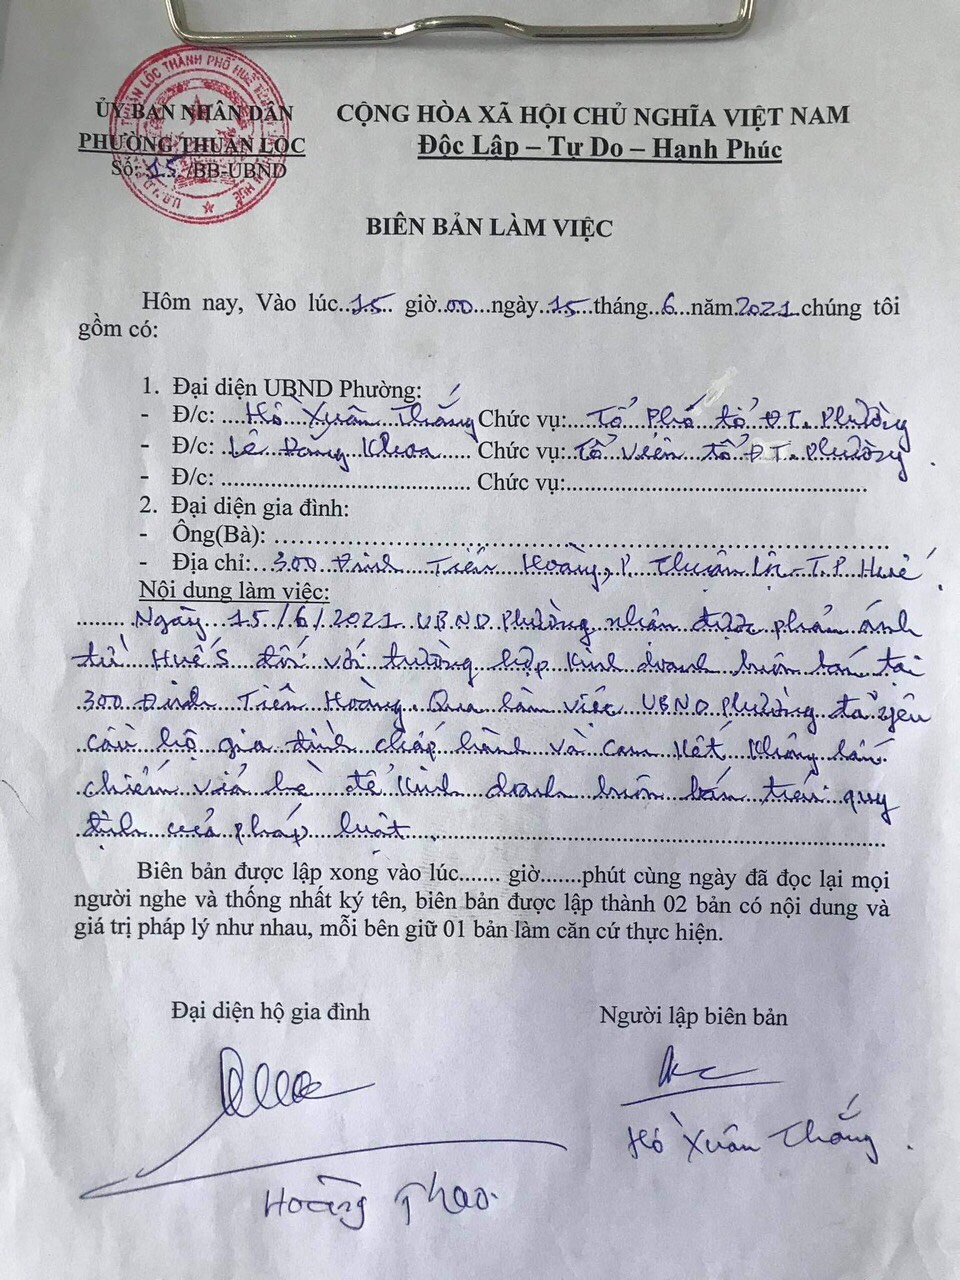 ỦY BAN NHÂN DÂN
PHƯỜNG THUẬN LỘC
Số: 15 /BB-UBND
CỘNG HÒA XÃ HỘI CHỦ NGHĨA VIỆT NAM
Độc Lập – Tự Do – Hạnh Phúc
BIÊN BẢN LÀM VIỆC
Hôm nay, Vào lúc..15.. giờ.00...ngày..15..tháng..6...năm.2021.chúng tôi
gồm có:
1. Đại diện UBND Phường:
- Đ/c: ...Hồ Xuân Thắng Chức vụ:..Tổ Phó tổ Đ.T..Phường
- Đ/c: Lê Đăng Khoa..... Chức vụ:.Tổ viên tổ Đ.T..Phường.
- Đ/c: .................................... Chức vụ:...........................................
2. Đại diện gia đình:
- Ông(Bà): ...............................................................................
- Địa chỉ: ..300 Đinh Tiên Hoàng, P. Thuận Lộc - T.P Huế
Nội dung làm việc:
.........Ngày...15../6./.2021...UBND.Phường nhận được phản ánh
từ Huế S đối với trường hợp kinh doanh buôn bán tại
300 Đinh Tiên Hoàng. Qua làm việc UBND Phường đã yêu
cầu hộ gia đình chấp hành và cam kết không lấn
chiếm vỉa hè để kinh doanh buôn bán quy
định của pháp luật.......................................................................
Biên bản được lập xong vào lúc....... giờ.......phút cùng ngày đã đọc lại mọi
người nghe và thống nhất ký tên, biên bản được lập thành 02 bản có nội dung và
giá trị pháp lý như nhau, mỗi bên giữ 01 bản làm căn cứ thực hiện.
Đại diện hộ gia đình
Người lập biên bản
Hồ Xuân Thắng.
Hoàng Thao